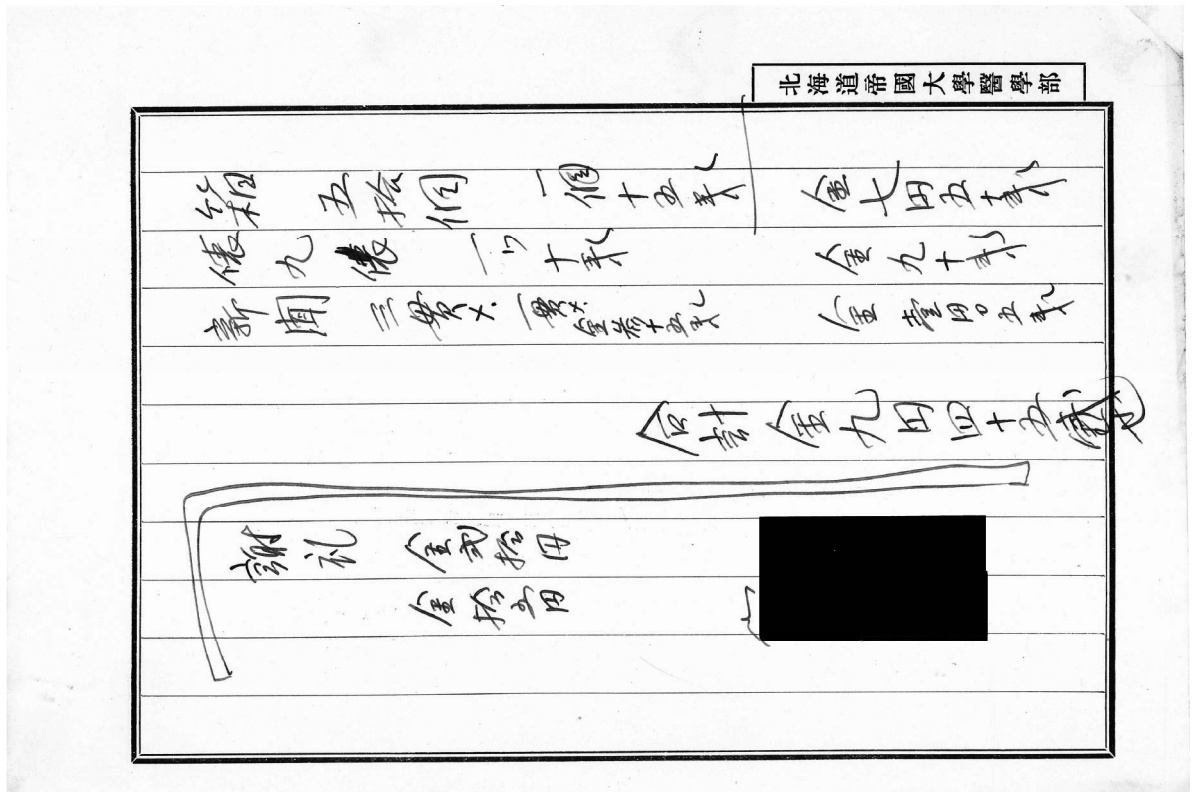 北海道帝國大學醫學部
箱 五拾個 一個十五銭 金七円五十銭
俵九俵 一ツ十銭 金九十銭
新聞 三貫メ 一貫メ金参十五銭 金壹円〇五銭
合計 金九円四十五銭
謝礼 金弐拾円
金拾五円